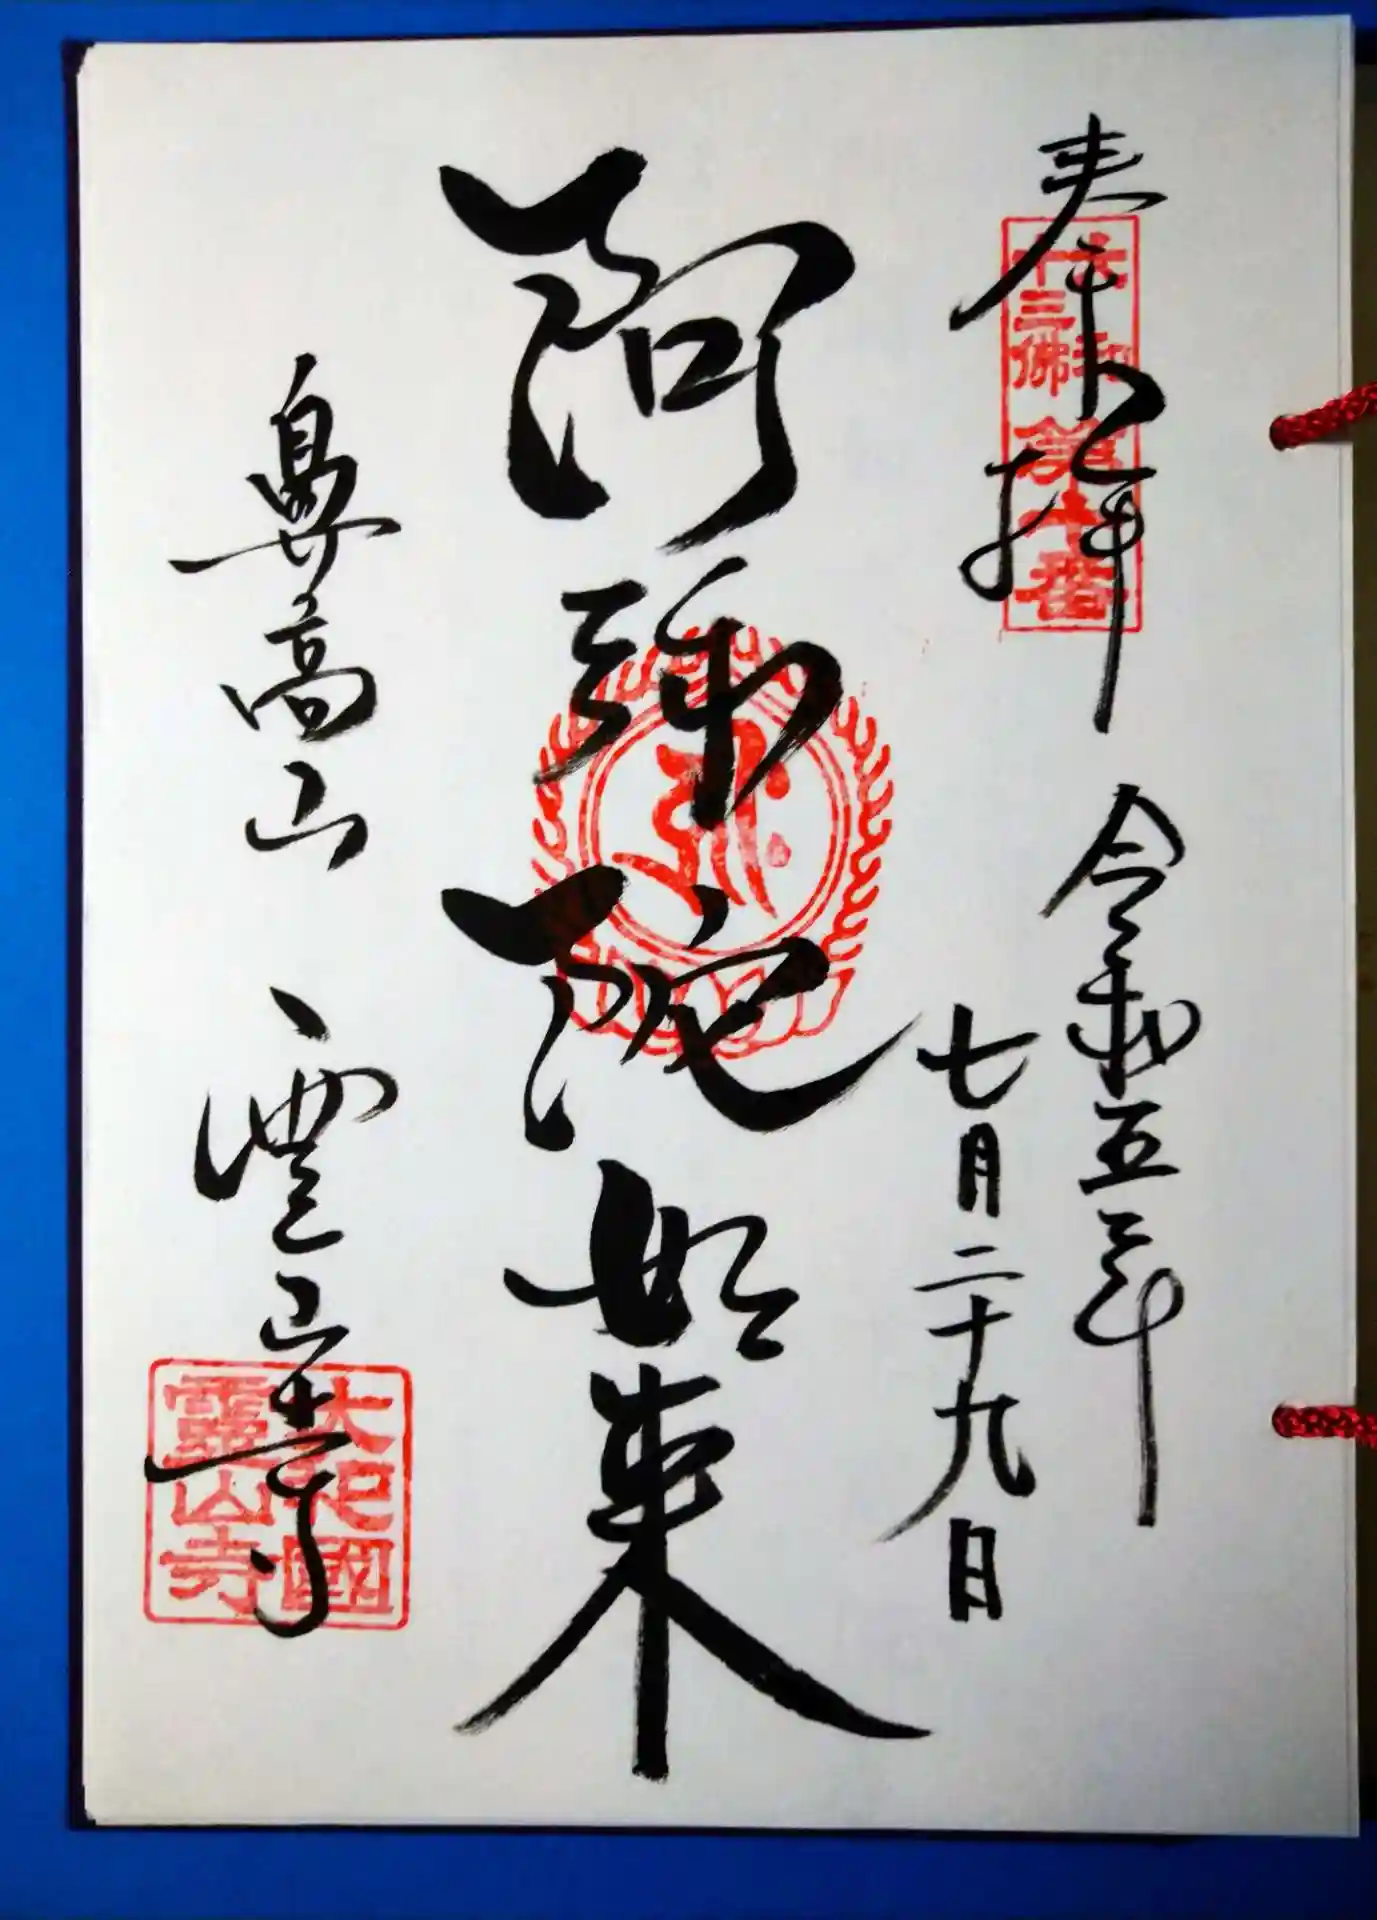 奉拝
大和十三佛第十番
令和五年
七月二十九日
阿弥陀如来
鼻高山
霊山寺
大和國
霊山寺